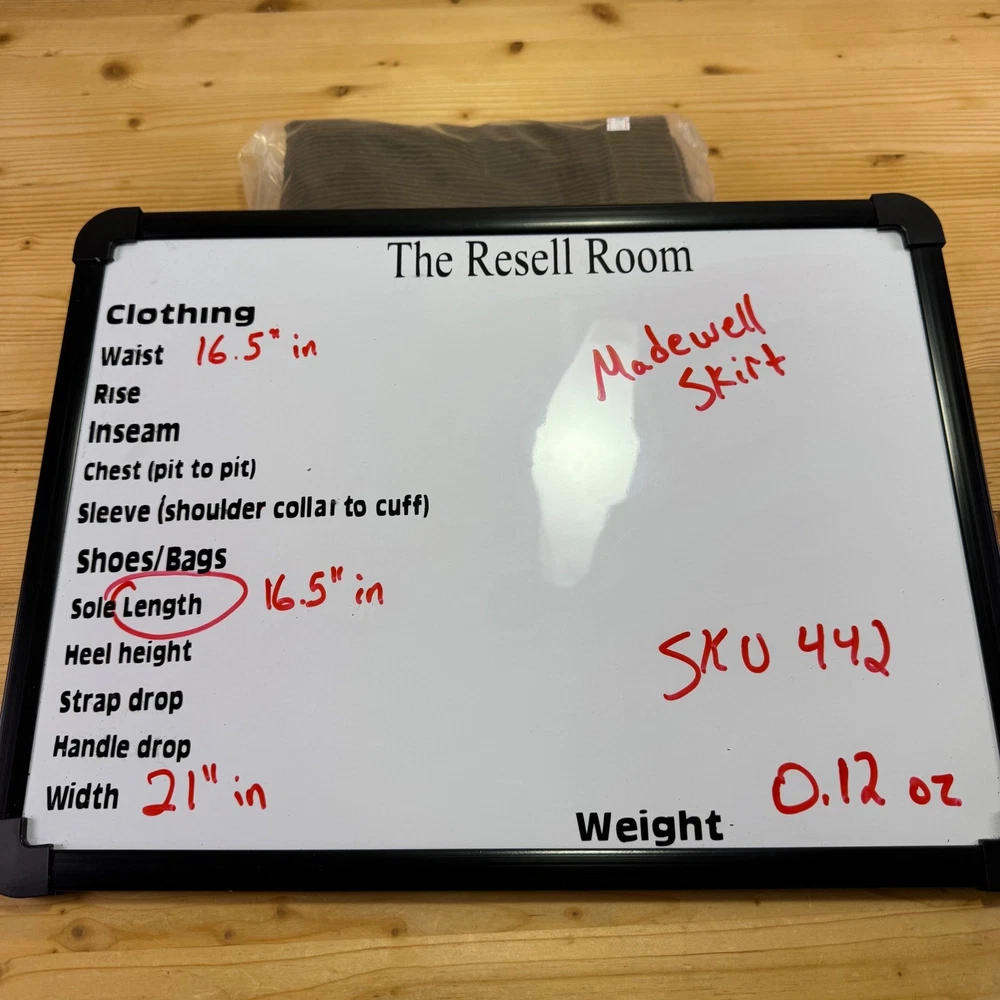 The Resell Room
Clothing
Waist 16.5" in
Rise
Inseam
Chest (pit to pit)
Sleeve (shoulder collar to cuff)
Shoes/Bags
Sole Length 16.5" in
Heel height
Strap drop
Handle drop
Width 21" in
Madewell
Skirt
SKU 442
Weight 0.12 oz